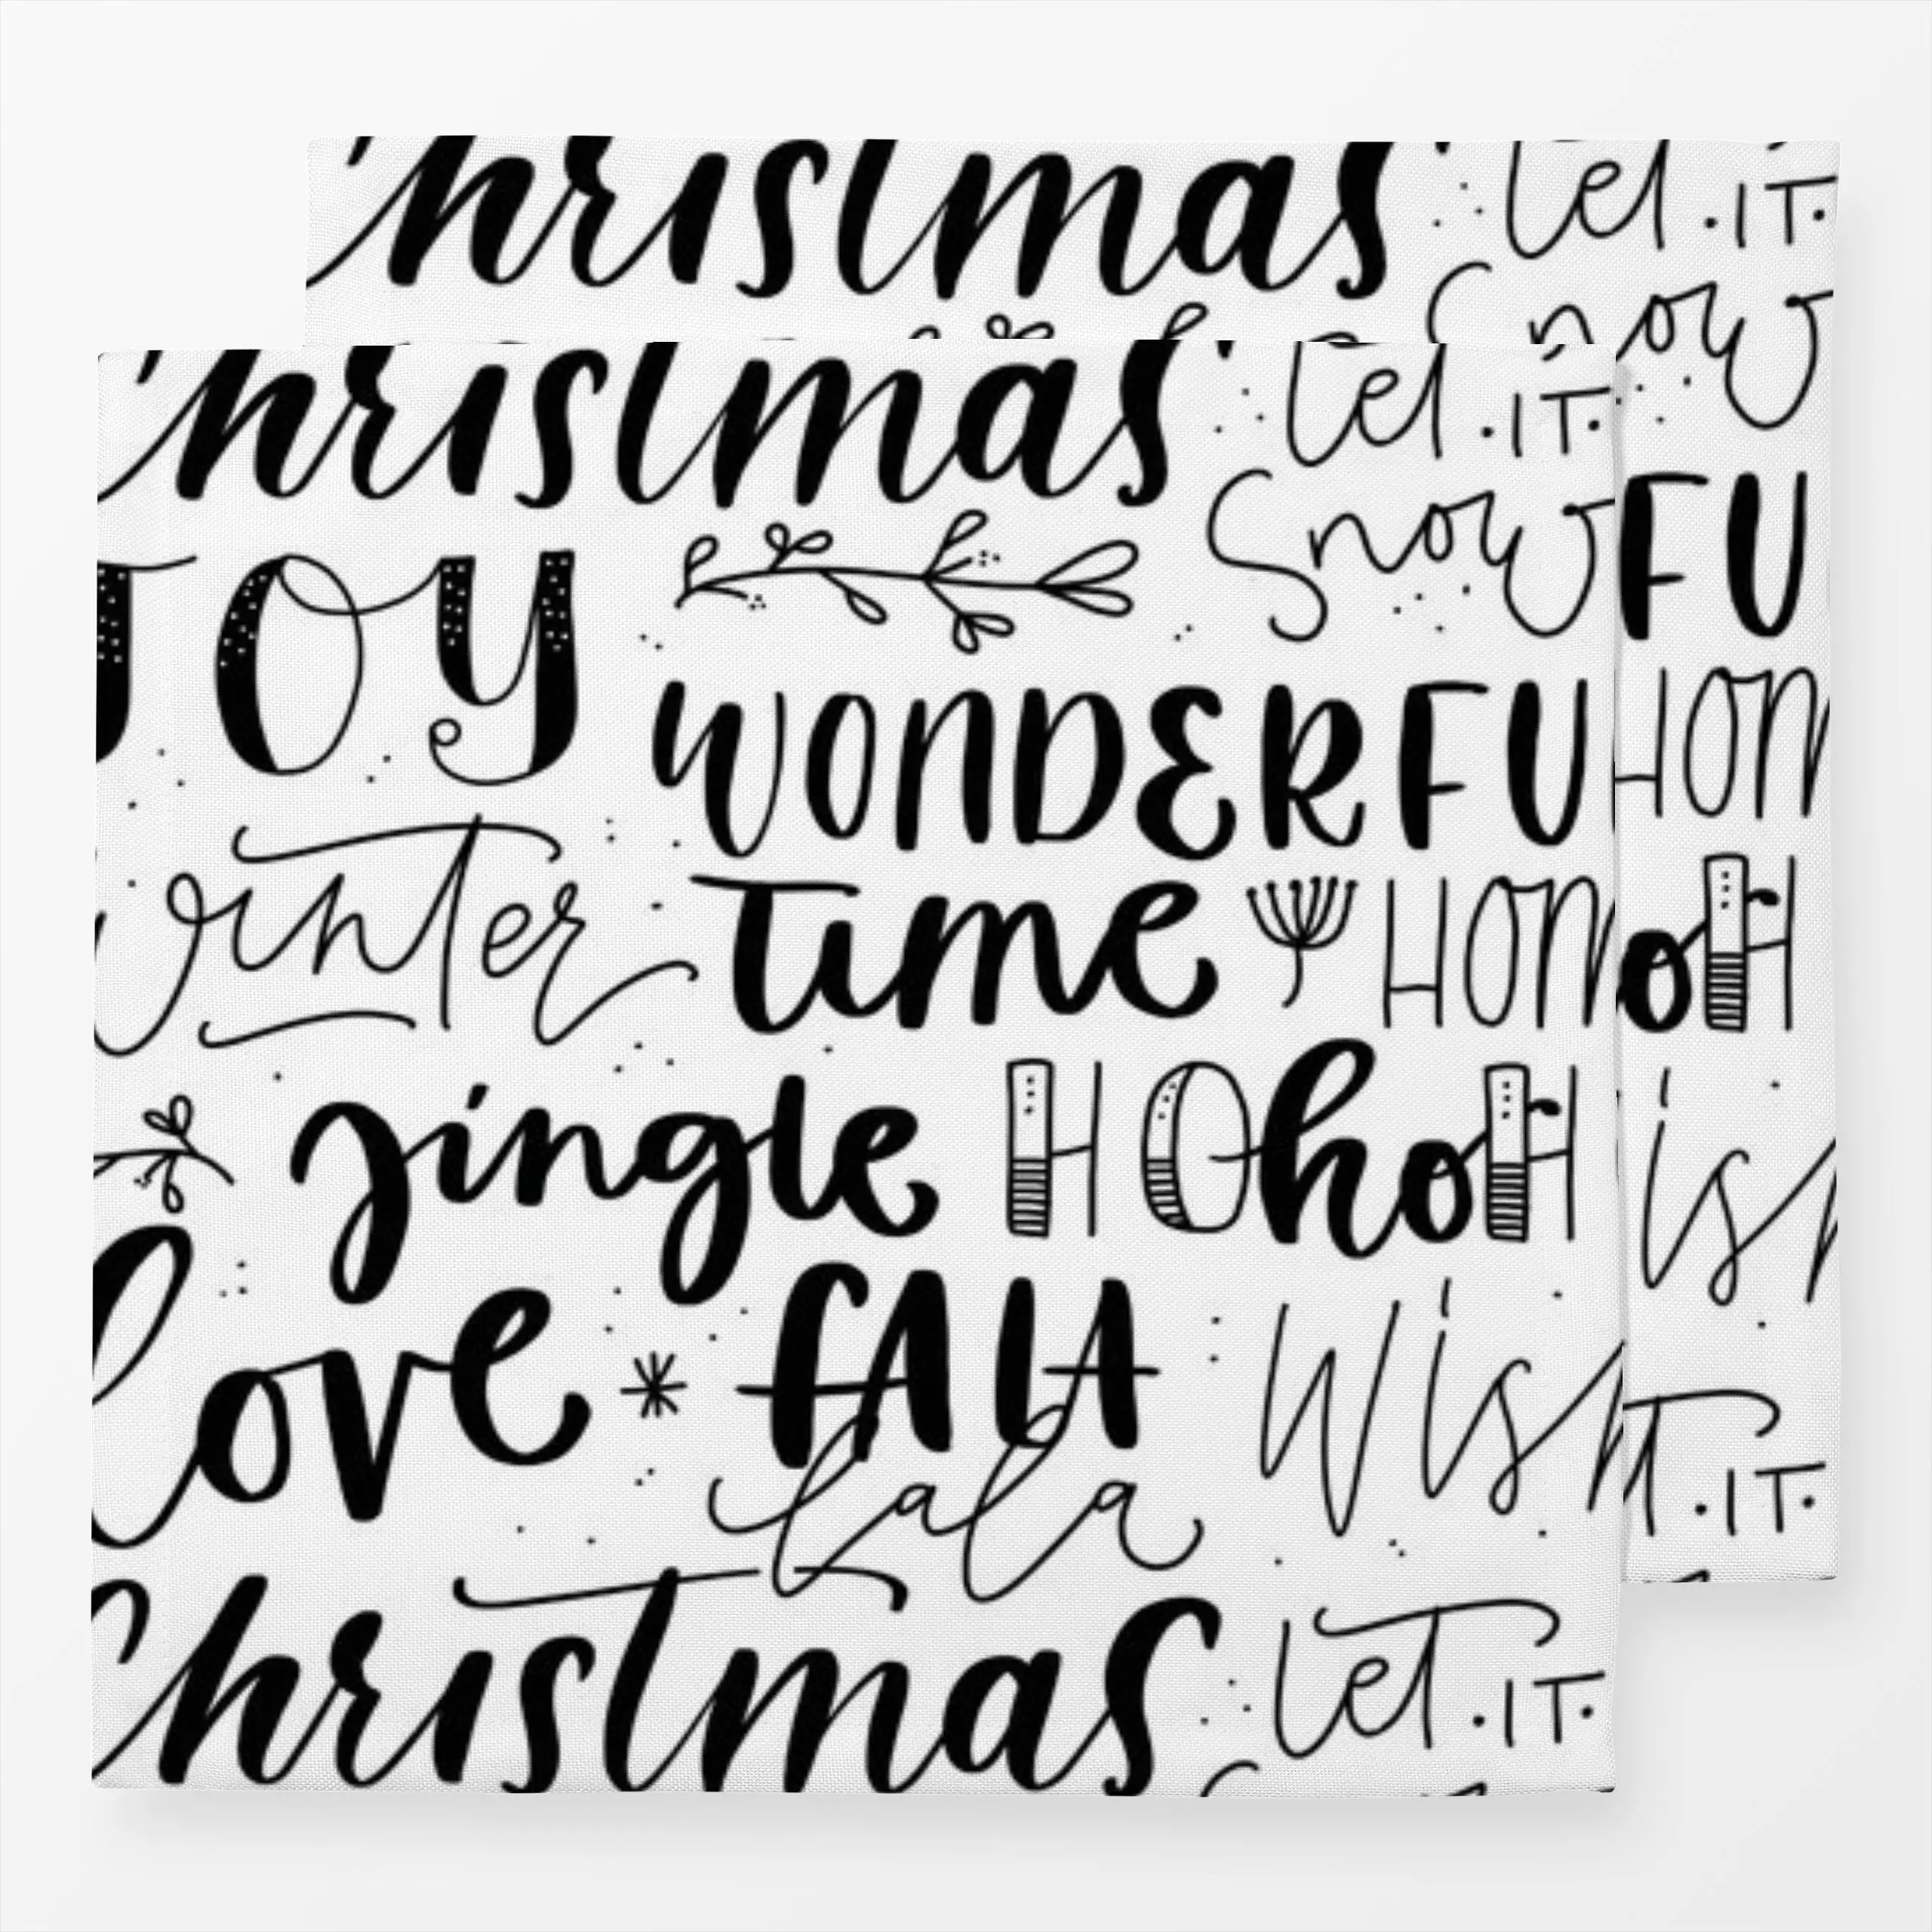 hristmas let .IT.
Snow
hristmas let .IT.
Snow
FU
JOY
WONDERFU
HOM
winter
Time HOM
oH
jingle HOhoH
is
love * fALA wish
lala
T.IT.
Christmas let .IT.